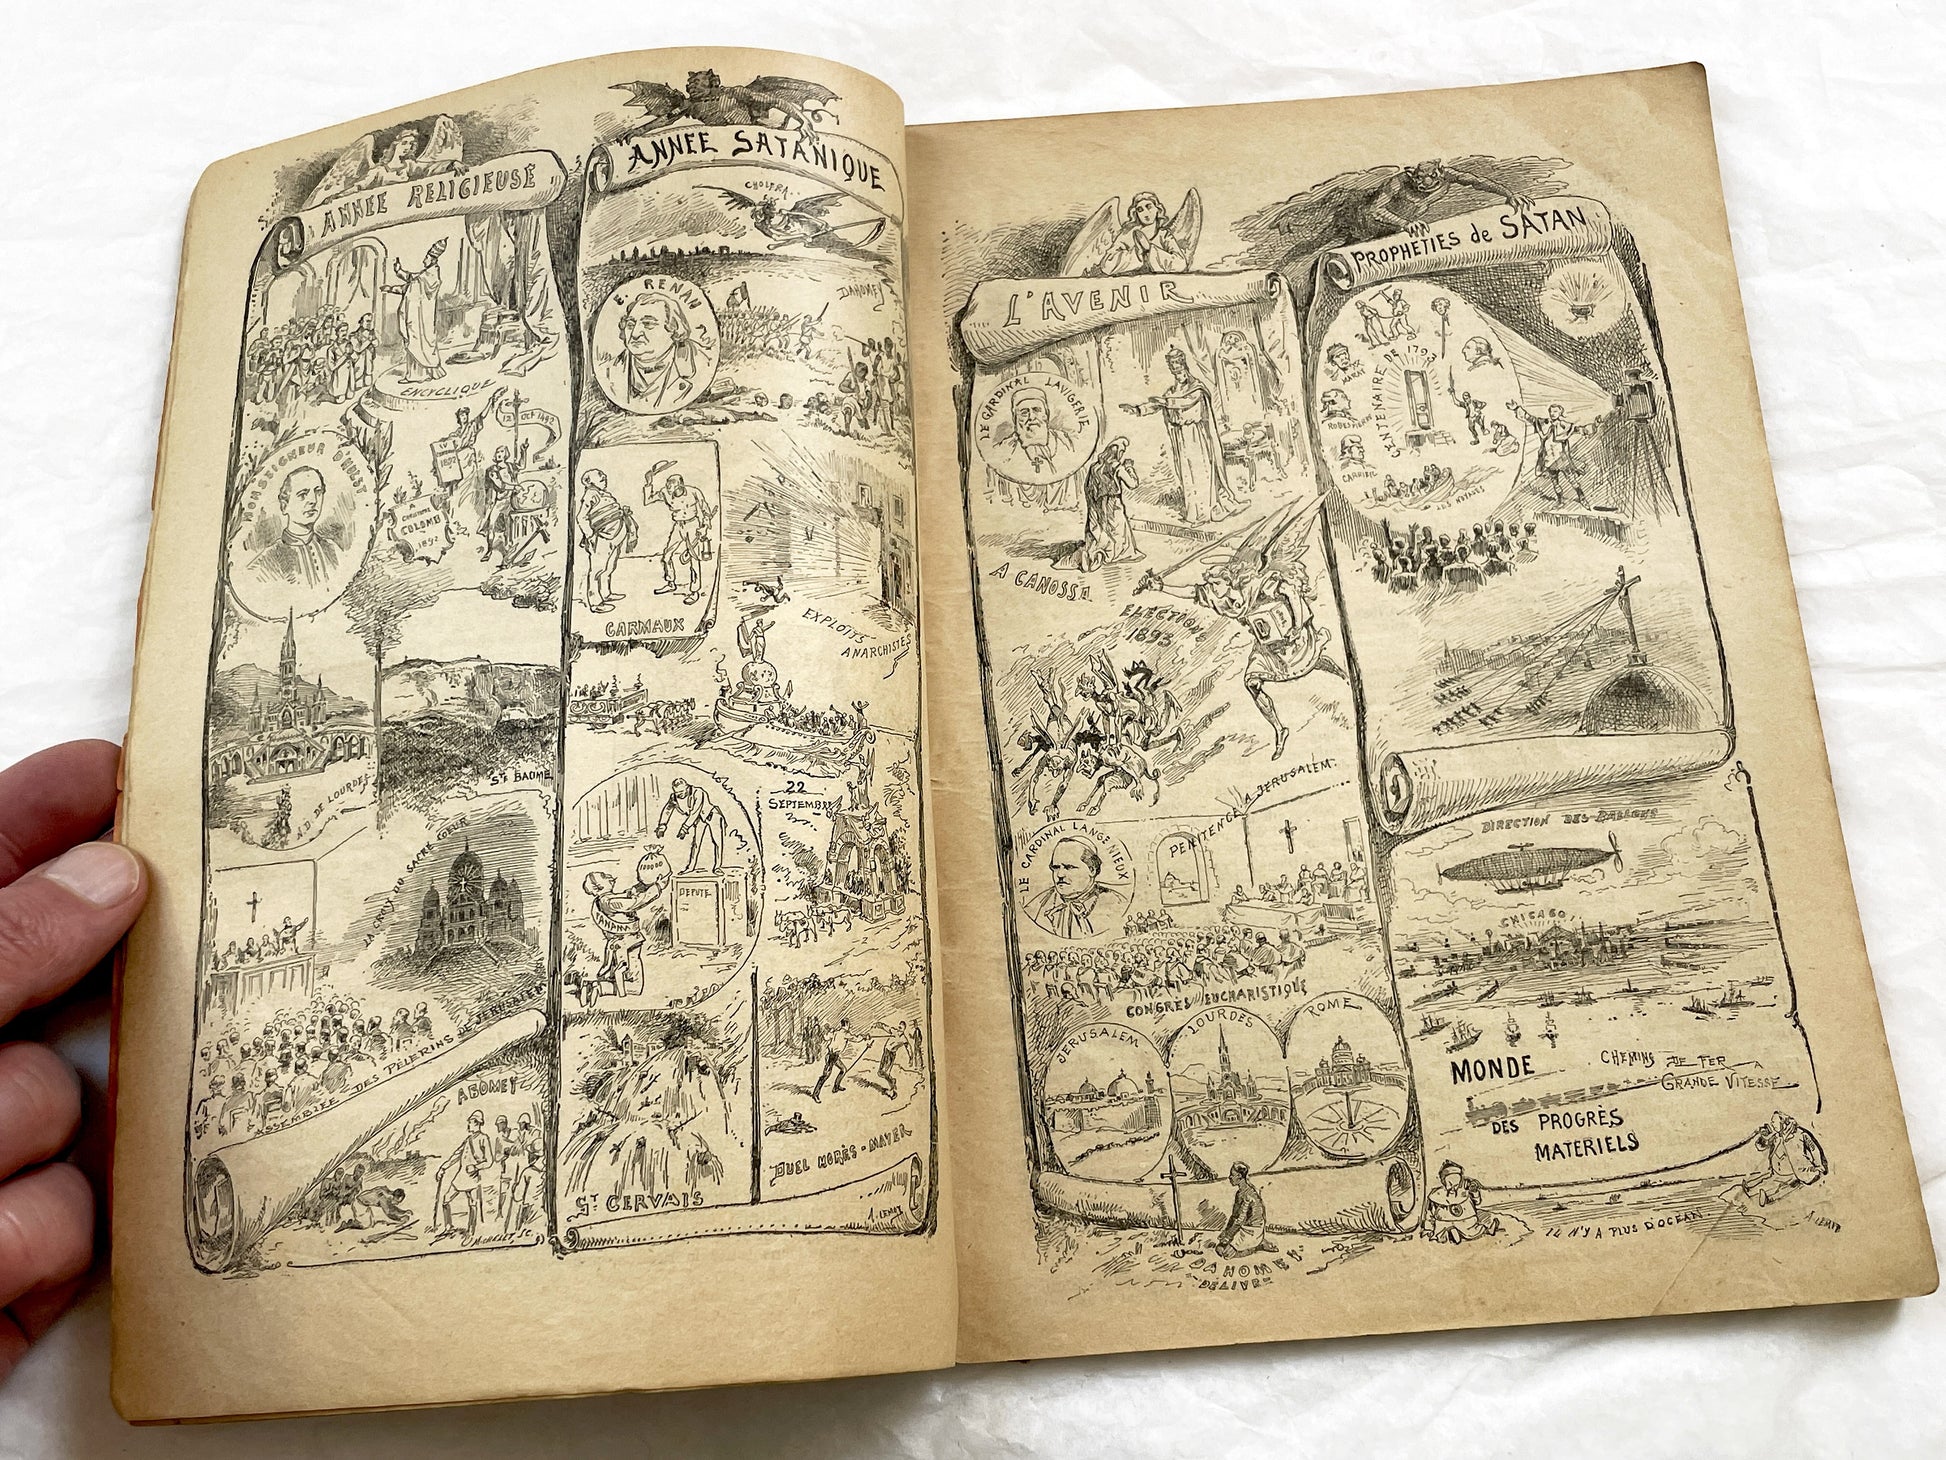 ANNÉE RELIGIEUSE
ENCYCLIQUE
MONSEIGNEUR D'HULST
12 OCT 1492
A
CHRISTOPHE
COLOMB
1892
N.D. DE LOURDES
STE BAUME
LA CROIX DU SACRÉ COEUR
ASSEMBLÉE DES PÈLERINS DE JERUSALEM
ABOMEY
ANNEE SATANIQUE
CHOLERA
E. RENAN
DAHOMEY
CARMAUX
EXPLOITS
ANARCHISTES
22
SEPTEMBRE
DEPUTÉ
PANAMA
ST GERVAIS
DUEL MORÈS-MAYER
A. LEMOT
L'AVENIR
LE CARDINAL LAVIGERIE
A CANOSSA
ELECTIONS
1893
PENITENCE A JERUSALEM
LE CARDINAL LANGENIEUX
CONGRÈS EUCHARISTIQUE
JERUSALEM
LOURDES
ROME
DAHOMEY
DÉLIVRÉ
PROPHETIES de SATAN
CENTENAIRE DE 1793
MARAT
ROBESPIERRE
CARRIER
LES NOYADES
DIRECTION DES BALLONS
CHICAGO!
MONDE
CHEMINS DE FER A
GRANDE VITESSE
DES PROGRÈS
MATERIELS
IL N'Y A PLUS D'OCEAN
A. LEMOT